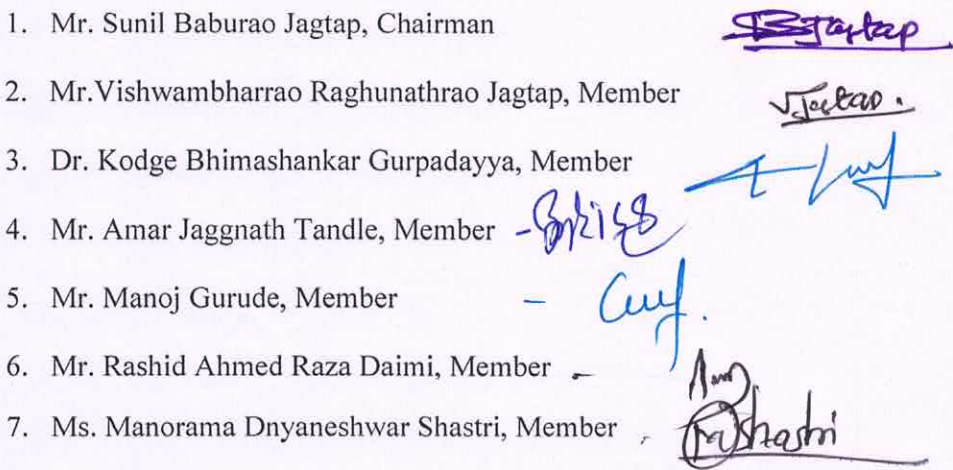 1. Mr. Sunil Baburao Jagtap, Chairman SBJagtap
2. Mr.Vishwambharrao Raghunathrao Jagtap, Member VJagtap.
3. Dr. Kodge Bhimashankar Gurpadayya, Member
4. Mr. Amar Jaggnath Tandle, Member -
5. Mr. Manoj Gurude, Member -
6. Mr. Rashid Ahmed Raza Daimi, Member -
7. Ms. Manorama Dnyaneshwar Shastri, Member - Shastri